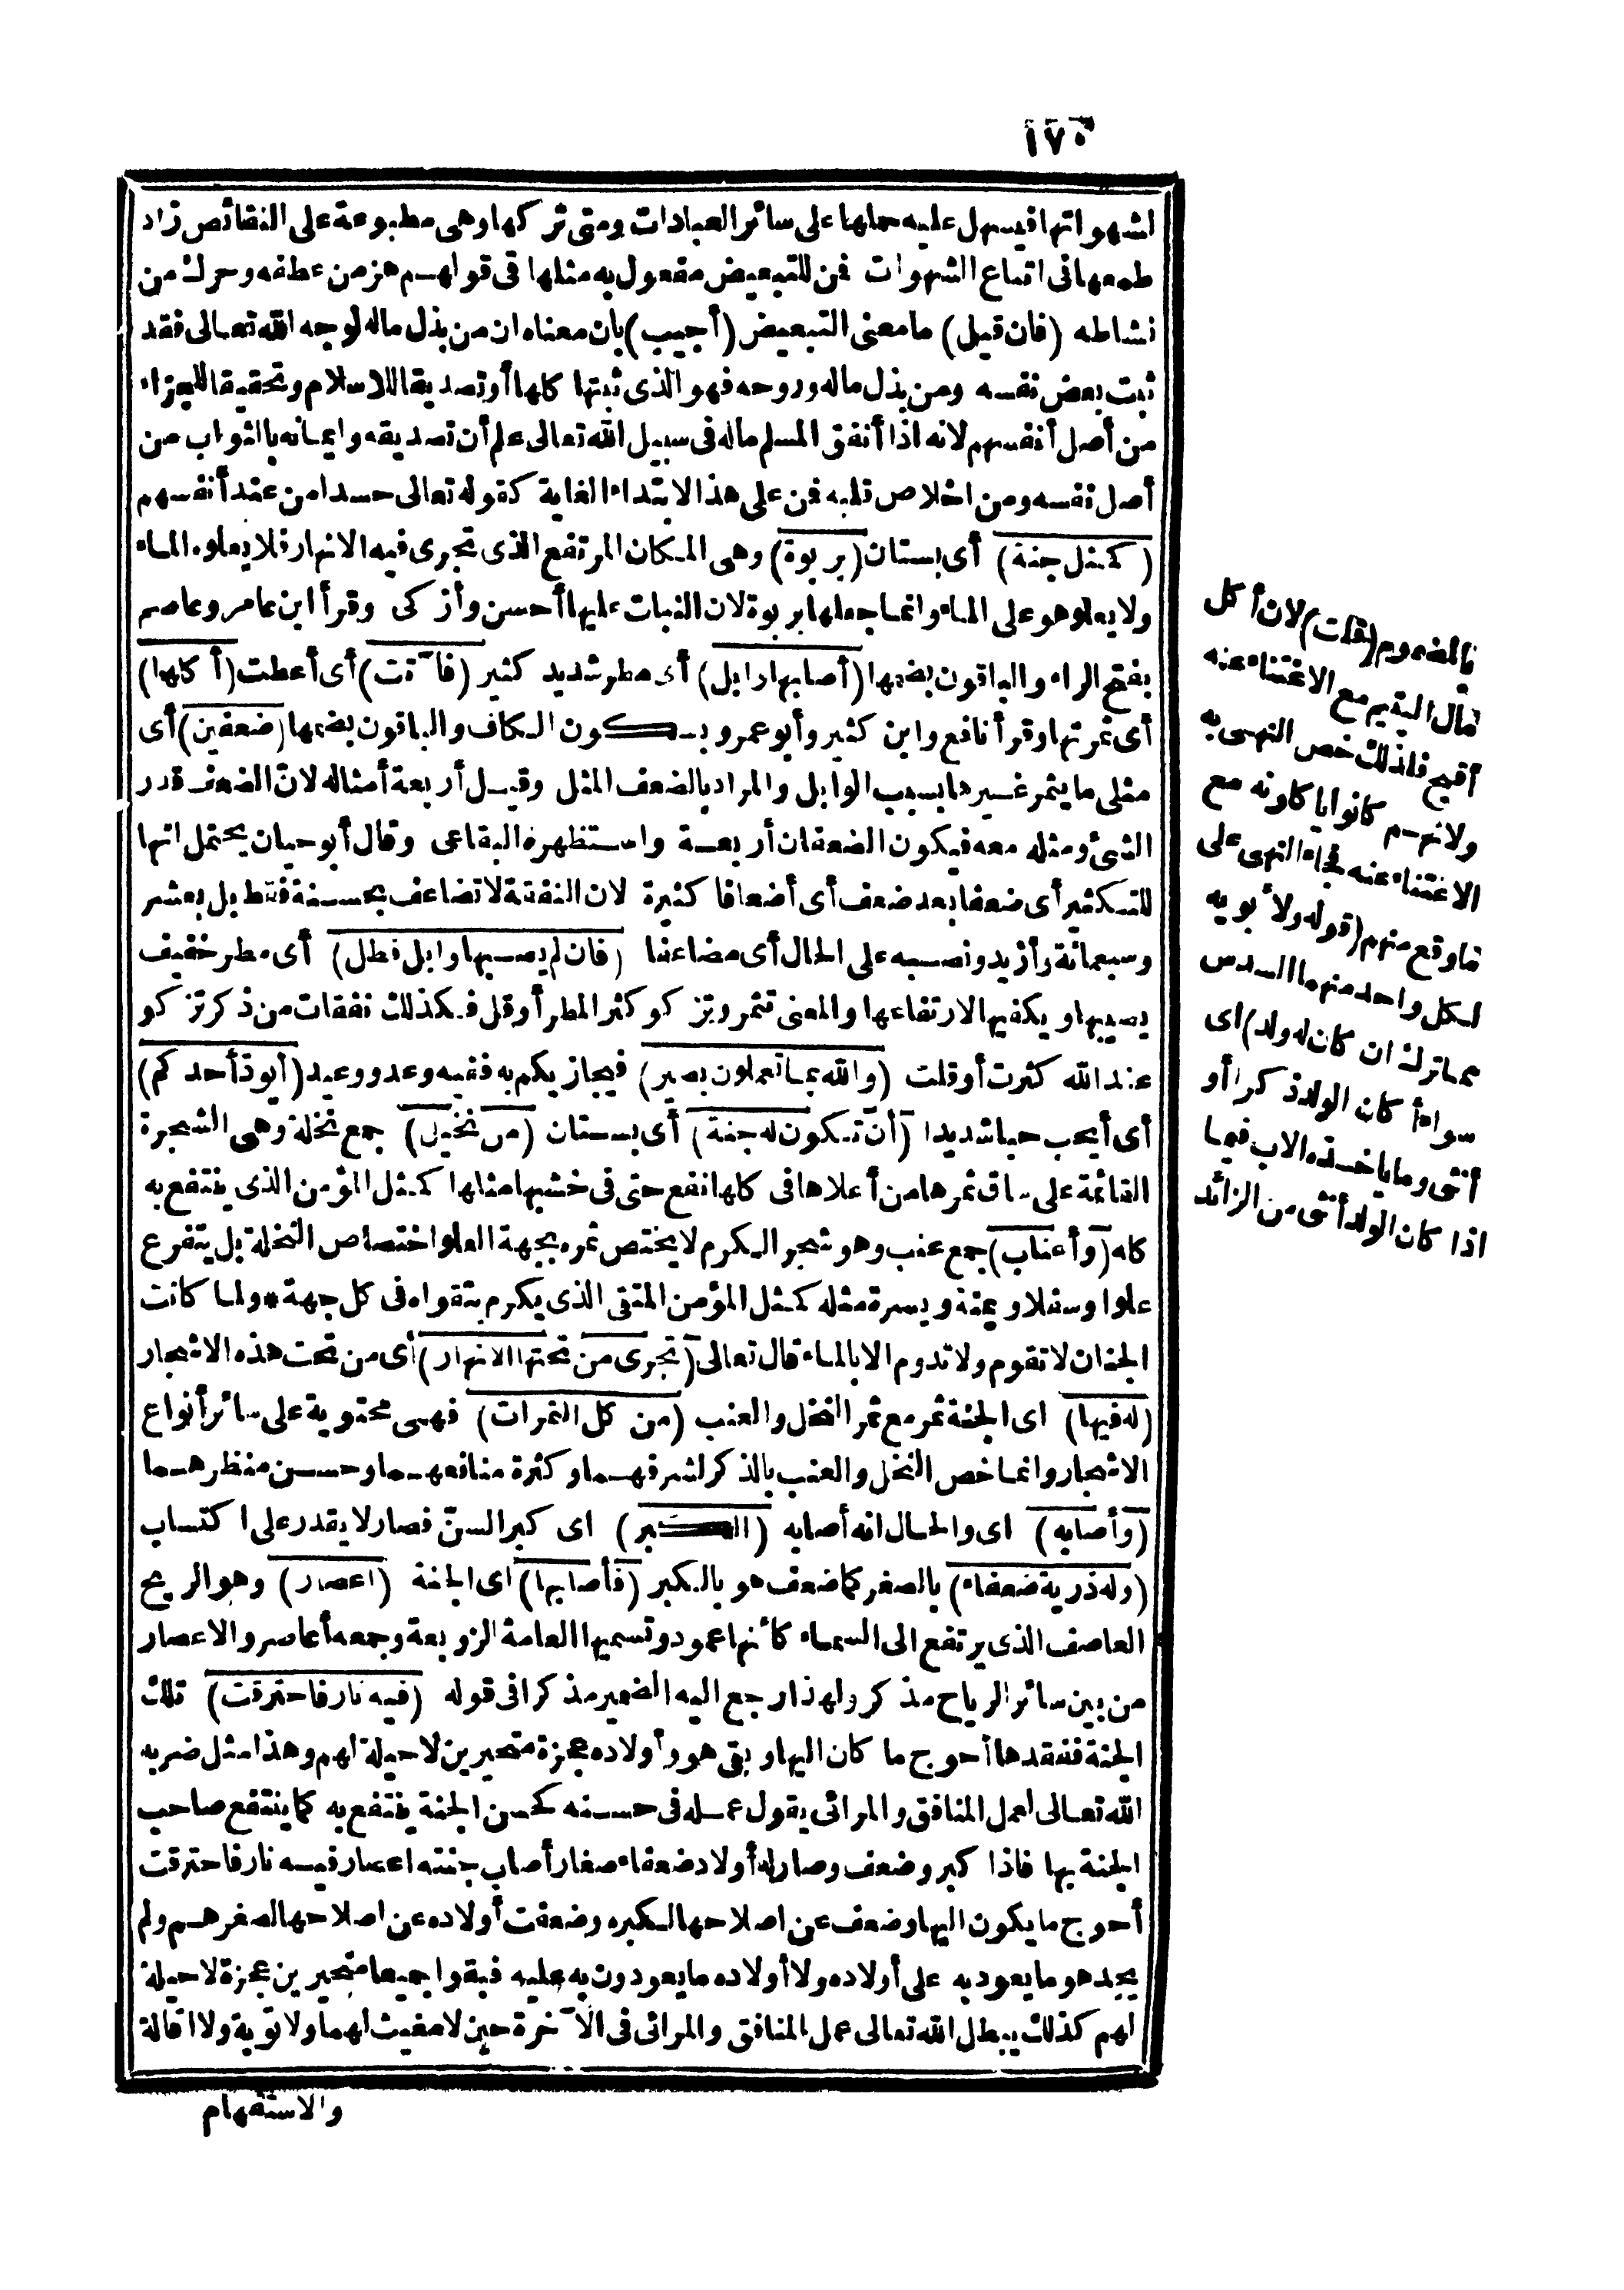 ١٧٥
لشهواتها فيسهل عليه حملها على سائر العبادات ومتى تركها وهى مطبوعة على النقائص زاد
طمعها فى اتباع الشهوات فمن للتبعيض مفعول به مثلها فى قولهم هز من عطفه وحرك من
نشاطه (فان قيل) ما معنى التبعيض (أجيب) بان معناه ان من بذل ماله لوجه الله تعالى فقد
ثبت بعض نفسه ومن بذل ماله وروحه فهو الذى ثبتها كلها أو تصديقا للاسلام وتحقيقا للجزاء
من أصل أنفسهم لانه اذا أنفق المسلم ماله فى سبيل الله تعالى علم أن تصديقه وايمانه بالثواب من
أصل نفسه ومن اخلاص قلبه فمن على هذا لابتداء الغاية كقوله تعالى حسدا من عند أنفسهم
(كمثل جنة) أى بستان (بربوة) وهى المكان المرتفع الذى تجرى فيه الانهار فلا يعلوه الماء
ولا يعلو هو على الماء وانما جعلها بربوة لان النبات عليها أحسن وأزكى وقرأ ابن عامر وعاصم
بفتح الراء والباقون بضمها (أصابها وابل) أى مطر شديد كثير (فآتت) أى أعطت (أكلها)
أى ثمرتها وقرأ نافع وابن كثير وأبو عمرو بسكون الكاف والباقون بضمها (ضعفين) أى
مثلى ما يثمر غيرها بسبب الوابل والمراد بالضعف المثل وقيل أربعة أمثاله لانّ الضعف قدر
الشئ ومثله معه فيكون الضعفان أربعة واستظهره البقاعى وقال أبو حيان يحتمل انها
للتكثير أى ضعفا بعد ضعف أى أضعافا كثيرة لان النفقة لا تضاعف بحسنة فقط بل بعشر
وسبعمائة وأزيد ونصبه على الحال أى مضاعفا (فان لم يصبها وابل فطل) أى مطر خفيف
يصيبها ويكفيها لارتفاعها والمعنى تثمر وتزكو كثر المطر أو قل فكذلك نفقات من ذكر تزكو
عند الله كثرت أو قلت (والله بما تعملون بصير) فيجازيكم به ففيه وعد ووعيد (أيودّ أحدكم)
أى أيحب حبا شديدا (أن تكون له جنة) أى بستان (من نخيل) جمع نخلة وهى الشجرة
القائمة على ساق ثمرها من أعلاها فى كلها نفع حتى فى خشبها مثلها كمثل المؤمن الذى ينتفع به
كله (وأعناب) جمع عنب وهو شجر الكرم لا يختص ثمره بجهة العلو اختصاص النخلة بل يتفرع
علوا وسفلا ويمنة ويسرة مثله كمثل المؤمن المتقى الذى يكرم بتقواه فى كل جهة * ولما كانت
الجنان لا تقوم ولا تدوم الا بالماء قال تعالى (تجرى من تحتها الانهار) أى من تحت هذه الاشجار
(له فيها) اى الجنة ثمر مع ثمر النخل والعنب (من كل الثمرات) فهى محتوية على سائر أنواع
الاشجار وانما خص النخل والعنب بالذكر لشرفهما وكثرة منافعهما وحسن منظرهما
(وأصابه) اى والحال انه أصابه (الكبر) اى كبر السنّ فصار لا يقدر على اكتساب
(وله ذرية ضعفاء) بالصغر كما ضعف هو بالكبر (فأصابها) اى الجنة (اعصار) وهو الريح
العاصف الذى يرتفع الى السماء كأنها عمود وتسميها العامة الزوبعة وجمعه أعاصر والاعصار
من بين سائر الرياح مذكر ولهذا رجع اليه الضمير مذكرا فى قوله (فيه نار فاحترقت) تلك
الجنة ففقدها أحوج ما كان اليها وبقى هو وأولاده عجزة متحيرين لا حيلة لهم وهذا مثل ضربه
الله تعالى لعمل المنافق والمرائى يقول عمله فى حسنه كحسن الجنة ينتفع به كما ينتفع صاحب
الجنة بها فاذا كبر وضعف وصار له أولاد ضعفاء صغار أصاب جنته اعصار فيه نار فاحترقت
أحوج ما يكون اليها وضعف عن اصلاحها لكبره وضعفت أولاده عن اصلاحها لصغرهم ولم
يجد هو ما يعود به على أولاده ولا أولاده ما يعودون به عليه فبقوا جميعا متحيرين عجزة لا حيلة
لهم كذلك يبطل الله تعالى عمل المنافق والمرائى فى الآخرة حين لا مغيث لهما ولا توبة ولا اقالة
والاستفهام
بالمضموم (قلت) لان أكل
مال اليتيم مع الاغتناء عنه
أقبح فلذلك خص النهى به
ولانهم كانوا يأكلونه مع
الاغتناء عنه فجاء النهى على
ما وقع منهم (قوله ولأبويه
لكل واحد منهما السدس
مما ترك ان كان له ولد) اى
سواء أكان الولد ذكرا أو
أنثى وما يأخذه الاب فيما
اذا كان الولد أنثى من الزائد